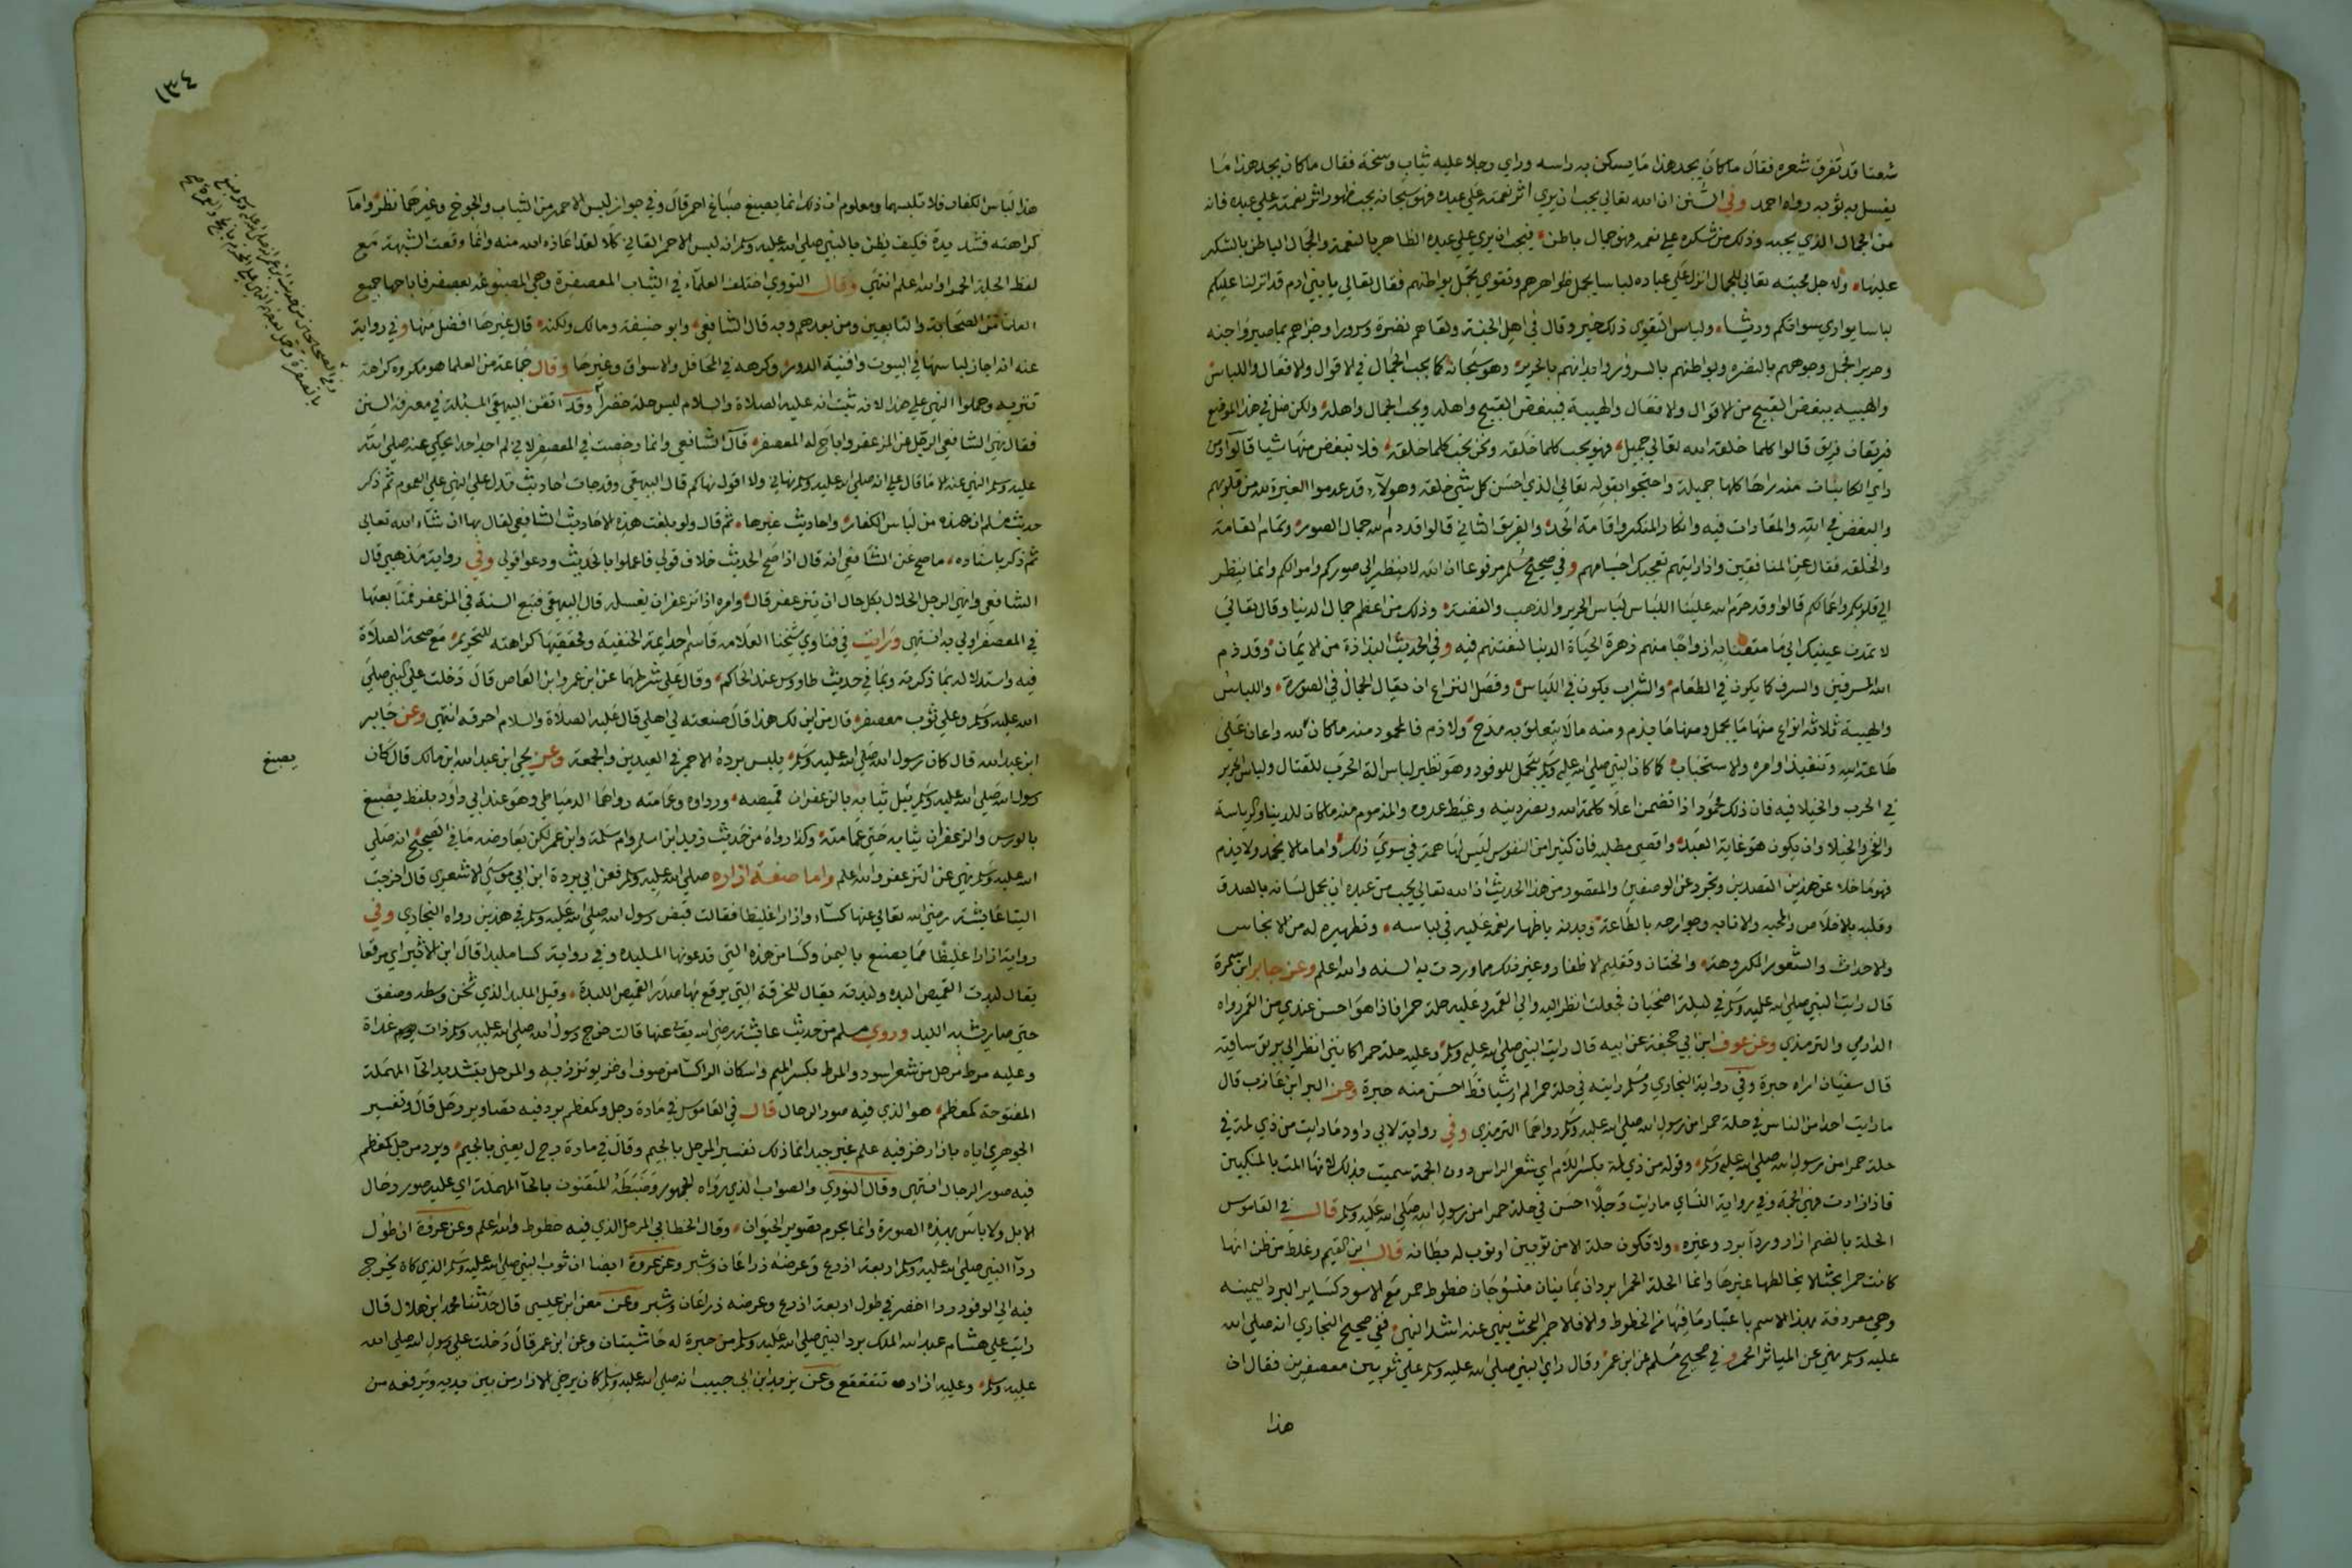 شعثا قد تفرق شعره فقال ما كان يجد هذا ما يسكن به راسه وراي رجلا عليه ثياب وسخة فقال ما كان يجد هذا ما
يغسل به ثوبه رواه احمد وفي السنن ان الله تعالي يحب ان يري اثر نعمته علي عبده فهو سبحانه يحب ظهور اثر نعمته علي عبده فانه
من الجمال الذي يحبه وذلك من شكره علي نعمه فهو جمال باطن فيحب ان يري علي عبده الجمال الظاهر بالنعمة والجمال الباطن بالشكر
عليها ولاجل محبته تعالي للجمال انزل علي عباده لباسا يجمل ظواهرهم وتقوي تجمل بواطنهم فقال تعالي يا بني ادم قد انزلنا عليكم
لباسا يواري سواتكم وريشا ولباس التقوي ذلك خير وقال في اهل الجنة ولقاهم نضرة وسرورا وجزاهم بما صبروا جنة
وحريرا فجمل وجوههم بالنضره وبواطنهم بالسرور وابدانهم بالحرير وهو سبحانه كما يحب الجمال في الاقوال والافعال واللباس
والهيبه يبغض القبيح من الاقوال والافعال والهيبة فيبغض القبيح واهله ويحب الجمال واهله ولكن ضل في هذا الموضع
فريقان فريق قالوا كلما خلقه الله تعالي جميل فهو يحب كلما خلقه ونحن نحب كلما خلقه فلا نبغض منها شيا قالوا ومن
راي الكاينات منه راها كلها جميلة واحتجوا بقوله تعالي الذي احسن كل شي خلقه وهولاء قد عدموا الغيرة لله من قلوبهم
والبغض في الله والمعادات فيه وانكار المنكر واقامة الحد والفريق الثاني قالوا قد ذم الله جمال الصور وتمام القامة
والخلقه فقال عن المنافقين واذا رايتهم تعجبك اجسامهم وفي صحيح مسلم مرفوعا ان الله لا ينظر الي صوركم واموالكم وانما ينظر
الي قلوبكم واعمالكم قالوا وقد حرم الله علينا اللباس لباس الحرير والذهب والفضة وذلك من اعظم جمال الدنيا وقال تعالي
لا تمدن عينيك الي ما متعنا به ازواجا منهم زهرة الحياة الدنيا لنفتنهم فيه وفي الحديث البذاذة من الايمان وقد ذم
الله المسرفين والسرف كما يكون في الطعام والشراب يكون في اللباس وفصل النزاع ان يقال الجمال في الصورة واللباس
والهيبة ثلاثة انواع منها ما يحمل ومنها ما يذم ومنه ما لا يتعلق به مدح ولا ذم فالمحمود منه ما كان لله واعان علي
طاعة الله وتنفيذ اوامره والاستحباب كما كان النبي صلي الله عليه وسلم يتجمل للوفود وهو نظير لباس الة الحرب للقتال ولباس الحرير
في الحرب والخيلا فيه فان ذلك محمود اذا تضمن اعلا كلمة الله ونصر دينه وغيظ عدوه والمذموم منه ما كان للدنيا والرياسة
والفخر والخيلا وان يكون هو غاية العبد واقصي مطلبه فان كثيرا من النفوس ليس لها همة في سوي ذلك واما ما لا يحمد ولا يذم
فهو ما خلا عن هذين القصدين وتجرد عن الوصفين والمقصود من هذا الحديث ان الله تعالي يحب من عبده ان يجمل لسانه بالصدق
وقلبه بالاخلاص والمحبه والانابه وجوارحه بالطاعة وبدنه باظهار نعمه عليه في لباسه وتطهيره له من الانجاس
والاحداث والشعور المكروهة والختان وتقليم الاظفار وغير ذلك مما وردت به السنه والله اعلم وعن جابر ابن سمرة
قال رايت النبي صلي الله عليه وسلم في ليلة اضحيان فجعلت انظر اليه والي القمر وعليه حلة حمرا فاذا هو احسن عندي من القمر رواه
الدارمي والترمذي وعن عوف ابن ابي جحيفة عن ابيه قال رايت النبي صلي الله عليه وسلم وعليه حلة حمرا كانني انظر الي بريق ساقيه
قال سفيان اراه حبرة وفي رواية البخاري ومسلم رايته في حلة حمرا لم ار شيا قط احسن منه حبرة وعن البرا ابن عازب قال
ما رايت احدا من الناس في حلة حمرا من رسول الله صلي الله عليه وسلم رواهما الترمذي وفي رواية لابي داود ما رايت من ذي لمة في
حلة حمرا من رسول الله صلي الله عليه وسلم وقوله من ذي لمة بكسر اللام اي شعر الراس دون الجمة سميت بذلك لانها المت بالمنكبين
فاذا زادت فهي الجمة وفي رواية النساي ما رايت رجلا احسن في حلة حمرا من رسول الله صلي الله عليه وسلم قال في القاموس
الحلة بالضم ازار وردا برد وغيره ولا تكون حلة الا من ثوبين او ثوب له بطانه قال ابن القيم وغلط من ظن انها
كانت حمرا بحتا لا يخالطها غيرها وانما الحلة الحمرا بردان يمانيان منسوجان بخطوط حمر مع الاسود كساير البرد اليمينه
وهي معروفة بهذا الاسم باعتبار ما فيها من الخطوط والا فالاحمر البحت ينهي عنه اشد النهي ففي صحيح البخاري انه صلي الله
عليه وسلم نهي عن المياثر الحمر وفي صحيح مسلم عن ابن عمر وقال راي النبي صلي الله عليه وسلم علي ثوبين معصفرين فقال ان
هذا
١٣٤
هذا لباس الكفار فلا تلبسهما ومعلوم ان ذلك انما يصبغ صباغ احمر قال وفي جواز لبس الاحمر من الثياب والجوخ وغيرهما نظر واما
كراهته فشديدة فكيف يظن بالنبي صلي الله عليه وسلم انه لبس الاحمر القاني كلا لقد اعاذه الله منه وانما وقعت الشبهة مع
لفظ الحلة الحمرا والله اعلم انتهي وقال النووي اختلف العلماء في الثياب المعصفرة وهي المصبوغة بعصفر فاباحها جميع
العلما من الصحابة والتابعين ومن بعدهم وبه قال الشافعي وابو حنيفة ومالك ولكنه قال غيرها افضل منها وفي رواية
عنه انه اجاز لباسها في البيوت وافنية الدور وكرهه في المحافل والاسواق وغيرها وقال جماعة من العلما هو مكروه كراهة
تنزيه وحملوا النهي علي هذا لانه ثبت انه عليه الصلاة والسلام لبس حلة حمرا وقد اتقن البيهقي المسئلة في معرفة السنن
فقال نهي الشافعي الرجل عن المزعفر واباح له المعصفر قال الشافعي وانما رخصت في المعصفر لاني لم اجد احدا يحكي عنه صلي الله
عليه وسلم النهي عنه الا ما قال علي انه صلي الله عليه وسلم نهاني ولا اقول نهاكم قال البيهقي وقد جات احاديث تدل علي النهي علي العموم ثم ذكر
حديث مسلم ان هذه من لباس الكفار واحاديث غيرها ثم قال ولو بلغت هذه الاحاديث الشافعي لقال بها ان شاء الله تعالي
ثم ذكر باسناده ما صح عن الشافعي انه قال اذا صح الحديث خلاف قولي فاعملوا بالحديث ودعوا قولي وفي رواية مذهبي قال
الشافعي وانهي الرجل الحلال بكل حال ان يتزعفر قال وامره اذا تزعفر ان يغسله قال البيهقي فتبع السنة في المزعفر فمتابعتها
في المعصفر اولي به انتهي ورايت في فتاوي شيخنا العلامه قاسم احد ايمة الحنفيه ومحققيها كراهته للتحريم مع صحة الصلاة
فيه واستدلا له بما ذكرته وبما في حديث طاووس عند الحاكم وقال علي شرطهما عن ابن عمرو ابن العاص قال دخلت علي النبي صلي
الله عليه وسلم وعلي ثوب معصفر قال من اين لك هذا قال صنعته لي اهلي قال عليه الصلاة والسلام احرقه انتهي وعن جابر
ابن عبد الله قال كان رسول الله صلي الله عليه وسلم يلبس برده الاحمر في العيدين والجمعة وعن يحيي ابن عبد الله ابن مالك قال كان
رسول الله صلي الله عليه وسلم ثيابه بالزعفران قميصه ورداوه وعمامته رواهما الدمياطي وهو عند ابي داود بلفظ يصبغ
بالورس والزعفران ثيابه حتي عمامته وكذا رواه من حديث زيد ابن اسلم وام سلمة وابن عمر لكن يعارضه ما في الصحيح انه صلي
الله عليه وسلم نهي عن التزعفر والله اعلم واما صفة ازاره صلي الله عليه وسلم فعن ابي بردة ابن ابي موسي الاشعري قال اخرجت
الينا عايشة رضي الله تعالي عنها كساء وازارا غليظا فقالت قبض رسول الله صلي الله عليه وسلم في هذين رواه البخاري وفي
رواية ازارا غليظا مما يصنع باليمن وكسا من هذه التي تدعونها الملبده وفي رواية كسا ملبدا قال ابن الاثير اي مرقعا
يقال لبدت القميص البده ولبدته يقال للخرقة التي يرقع بها صدر القميص اللبدة وقيل الملبد الذي ثخن وسطه وصفق
حتي صار يشبه اللبد وروي مسلم من حديث عايشة رضي الله تعالي عنها قالت خرج رسول الله صلي الله عليه وسلم ذات غداة
وعليه مرط مرحل من شعر اسود والمرط بكسر الميم واسكان الرا كسا من صوف او خز يوتزر به والمرحل بتشديد الحاء المهملة
المفتوحة كمعظم هو الذي فيه صور الرحال قال في القاموس في مادة رحل وكمعظم برد فيه تصاوير رحل قال وتفسير
الجوهري اياه بازار خز فيه علم غير جيد انما ذلك تفسير المرجل بالجيم وقال في مادة رج ل يعني بالجيم وبرد مرجل كمعظم
فيه صور الرجال انتهي وقال النووي والصواب الذي رواه الجمهور وضبطه المتقنون بالحاء المهملة اي عليه صور رحال
الابل ولا باس بهذه الصورة وانما يحرم تصوير الحيوان وقال الخطابي المرحل الذي فيه خطوط والله اعلم وعن عروة ان طول
ردا النبي صلي الله عليه وسلم اربعة اذرع وعرضه ذراعان وشبر وعن عروة ايضا ان ثوب النبي صلي الله عليه وسلم الذي كان يخرج
فيه الي الوفود ردا اخضر في طول اربعة اذرع وعرضه ذراعان وشبر وعن معن ابن عيسي قال حدثنا محمد ابن هلال قال
رايت علي هشام عبد الله الملك برد النبي صلي الله عليه وسلم من حبرة له حاشيتان وعن ابن عمر قال دخلت علي رسول الله صلي الله
عليه وسلم وعليه ازاره تتقعقع وعن يزيد ابن ابي حبيب انه صلي الله عليه وسلم كان يرخي الازار من بين يديه ويرفعه من
يصبغ